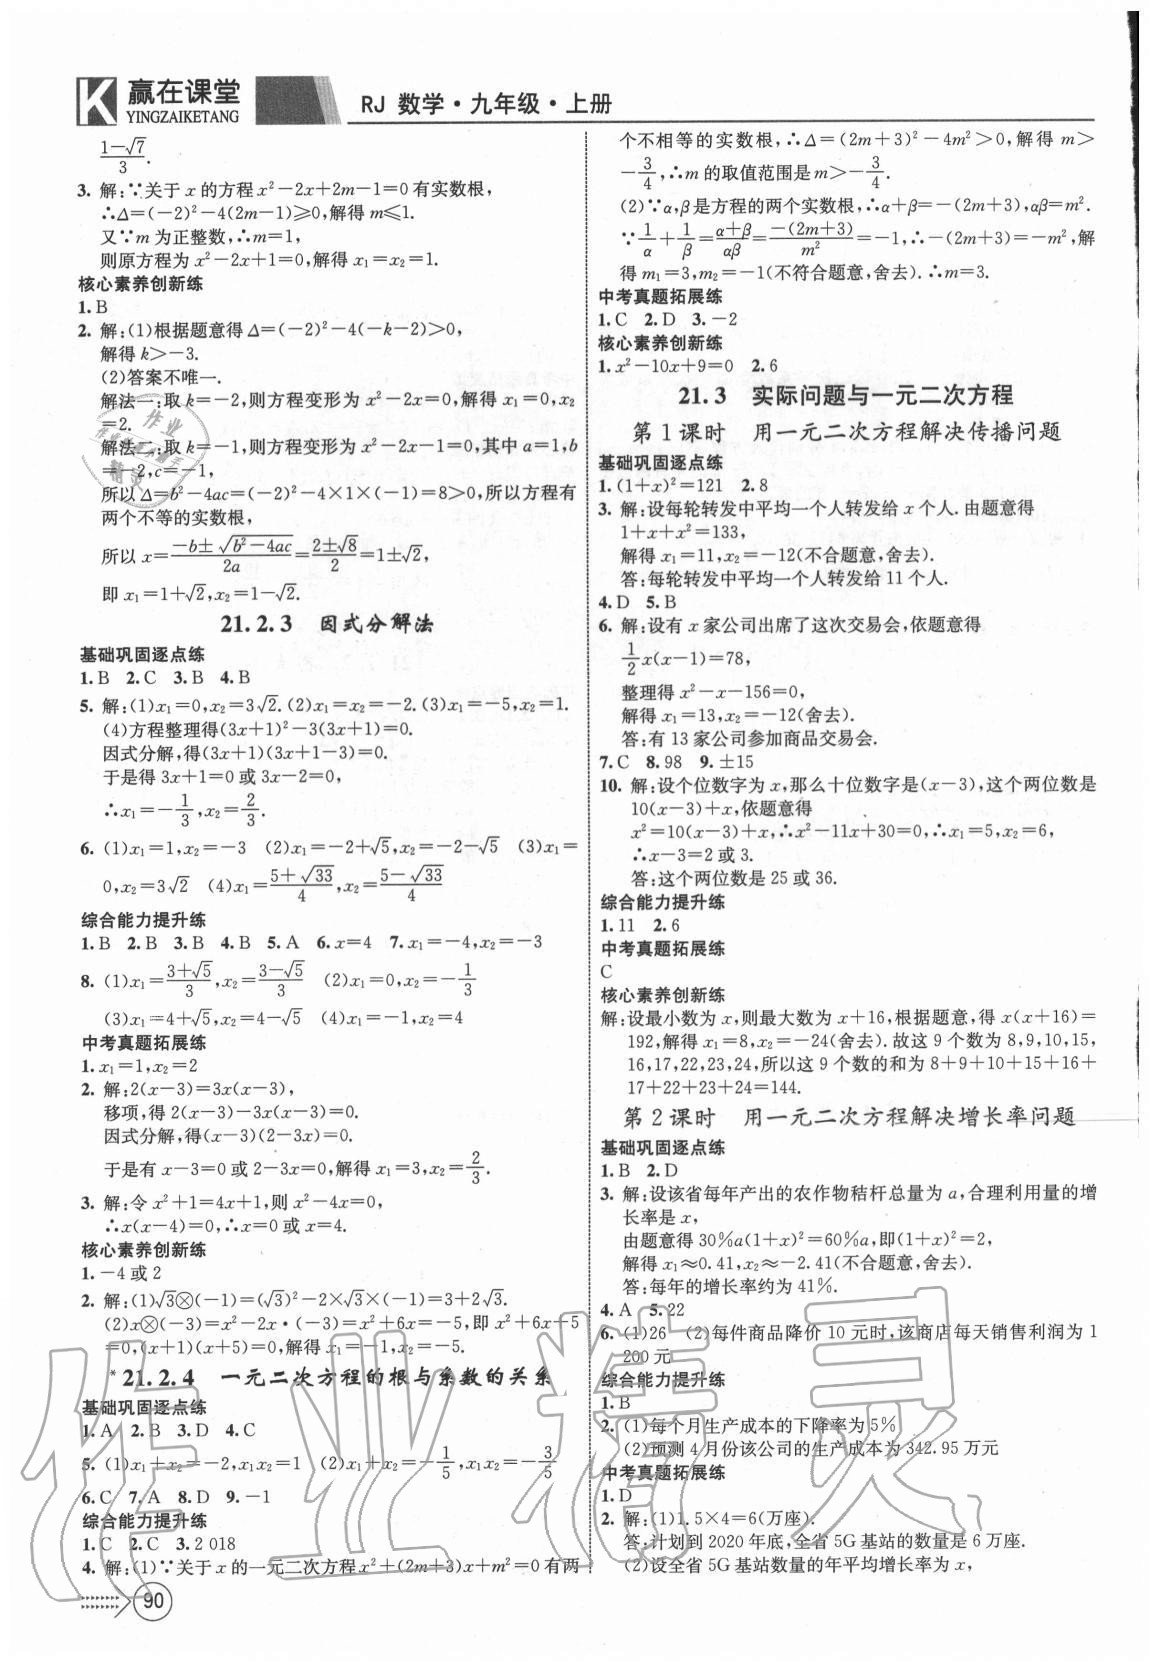 赢在课堂
YINGZAIKETANG
RJ 数学·九年级·上册
(1-√7)/3.
3. 解:∵关于 x 的方程 x²-2x+2m-1=0 有实数根,
∴Δ=(-2)²-4(2m-1)≥0,解得 m≤1.
又∵m 为正整数,∴m=1,
则原方程为 x²-2x+1=0,解得 x₁=x₂=1.
核心素养创新练
1. B
2. 解:(1)根据题意得 Δ=(-2)²-4(-k-2)>0,
解得 k>-3.
(2)答案不唯一.
解法一:取 k=-2,则方程变形为 x²-2x=0,解得 x₁=0,x₂
=2.
解法二:取 k=-1,则方程变形为 x²-2x-1=0,其中 a=1,b
=-2,c=-1,
所以 Δ=b²-4ac=(-2)²-4×1×(-1)=8>0,所以方程有
两个不等的实数根,
所以 x=(-b±√(b²-4ac))/2a=(2±√8)/2=1±√2,
即 x₁=1+√2,x₂=1-√2.
21.2.3 因式分解法
基础巩固逐点练
1. B 2. C 3. B 4. B
5. 解:(1)x₁=0,x₂=3√2.(2)x₁=x₂=-2.(3)x₁=-5,x₂=1.
(4)方程整理得(3x+1)²-3(3x+1)=0.
因式分解,得(3x+1)(3x+1-3)=0.
于是得 3x+1=0 或 3x-2=0,
∴x₁=-1/3,x₂=2/3.
6. (1)x₁=1,x₂=-3 (2)x₁=-2+√5,x₂=-2-√5 (3)x₁=
0,x₂=3√2 (4)x₁=(5+√33)/4,x₂=(5-√33)/4
综合能力提升练
1. B 2. B 3. B 4. B 5. A 6. x=4 7. x₁=-4,x₂=-3
8. (1)x₁=(3+√5)/3,x₂=(3-√5)/3 (2)x₁=0,x₂=-1/3
(3)x₁=4+√5,x₂=4-√5 (4)x₁=-1,x₂=4
中考真题拓展练
1. x₁=1,x₂=2
2. 解:2(x-3)=3x(x-3),
移项,得 2(x-3)-3x(x-3)=0.
因式分解,得(x-3)(2-3x)=0.
于是有 x-3=0 或 2-3x=0,解得 x₁=3,x₂=2/3.
3. 解:令 x²+1=4x+1,则 x²-4x=0.
∴x(x-4)=0,∴x=0 或 x=4.
核心素养创新练
1. -4 或 2
2. 解:(1)√3⊗(-1)=(√3)²-2×√3×(-1)=3+2√3.
(2)x⊗(-3)=x²-2x·(-3)=x²+6x=-5,即 x²+6x+5
=0,(x+1)(x+5)=0,解得 x₁=-1,x₂=-5.
*21.2.4 一元二次方程的根与系数的关系
基础巩固逐点练
1. A 2. B 3. D 4. C
5. (1)x₁+x₂=-2,x₁x₂=1 (2)x₁+x₂=-1/5,x₁x₂=-3/5
6. C 7. A 8. D 9. -1
综合能力提升练
1. C 2. C 3. 2 018
4. 解:(1)∵关于 x 的一元二次方程 x²+(2m+3)x+m²=0 有两
90
个不相等的实数根,∴Δ=(2m+3)²-4m²>0,解得 m>
-3/4,∴m 的取值范围是 m>-3/4.
(2)∵α,β 是方程的两个实数根,∴α+β=-(2m+3),αβ=m².
∵1/α+1/β=(α+β)/αβ=-(2m+3)/m²=-1,∴-(2m+3)=-m²,解
得 m₁=3,m₂=-1(不符合题意,舍去).∴m=3.
中考真题拓展练
1. C 2. D 3. -2
核心素养创新练
1. x²-10x+9=0 2. 6
21.3 实际问题与一元二次方程
第 1 课时 用一元二次方程解决传播问题
基础巩固逐点练
1. (1+x)²=121 2. 8
3. 解:设每轮转发中平均一个人转发给 x 个人.由题意得
1+x+x²=133,
解得 x₁=11,x₂=-12(不合题意,舍去).
答:每轮转发中平均一个人转发给 11 个人.
4. D 5. B
6. 解:设有 x 家公司出席了这次交易会,依题意得
1/2x(x-1)=78,
整理得 x²-x-156=0,
解得 x₁=13,x₂=-12(舍去).
答:有 13 家公司参加商品交易会.
7. C 8. 98 9. ±15
10. 解:设个位数字为 x,那么十位数字是(x-3),这个两位数是
10(x-3)+x,依题意得
x²=10(x-3)+x,∴x²-11x+30=0,∴x₁=5,x₂=6,
∴x-3=2 或 3.
答:这个两位数是 25 或 36.
综合能力提升练
1. 11 2. 6
中考真题拓展练
C
核心素养创新练
解:设最小数为 x,则最大数为 x+16,根据题意,得 x(x+16)=
192,解得 x₁=8,x₂=-24(舍去).故这 9 个数为 8,9,10,15,
16,17,22,23,24,所以这 9 个数的和为 8+9+10+15+16+
17+22+23+24=144.
第 2 课时 用一元二次方程解决增长率问题
基础巩固逐点练
1. B 2. D
3. 解:设该省每年产出的农作物秸秆总量为 a,合理利用量的增
长率是 x,
由题意得 30%a(1+x)²=60%a,即(1+x)²=2,
解得 x₁≈0.41,x₂≈-2.41(不合题意,舍去).
答:每年的增长率约为 41%.
4. A 5. 22
6. (1)26 (2)每件商品降价 10 元时,该商店每天销售利润为 1
200 元
综合能力提升练
1. B
2. (1)每个月生产成本的下降率为 5%
(2)预测 4 月份该公司的生产成本为 342.95 万元
中考真题拓展练
1. D
2. 解:(1)1.5×4=6(万座).
答:计划到 2020 年底,全省 5G 基站的数量是 6 万座.
(2)设全省 5G 基站数量的年平均增长率为 x,
作业精灵